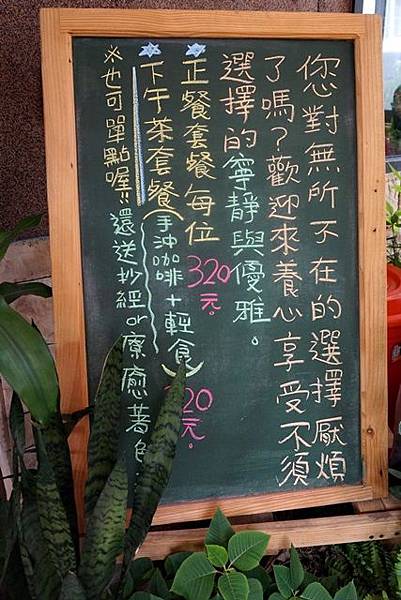 您對無所不在的選擇厭煩
了嗎?歡迎來養心享受不須
選擇的寧靜與優雅。
正餐套餐每位320元。
下午茶套餐(手沖咖啡+輕食)20元。
還送抄經or療癒著色
※也可單點喔!!